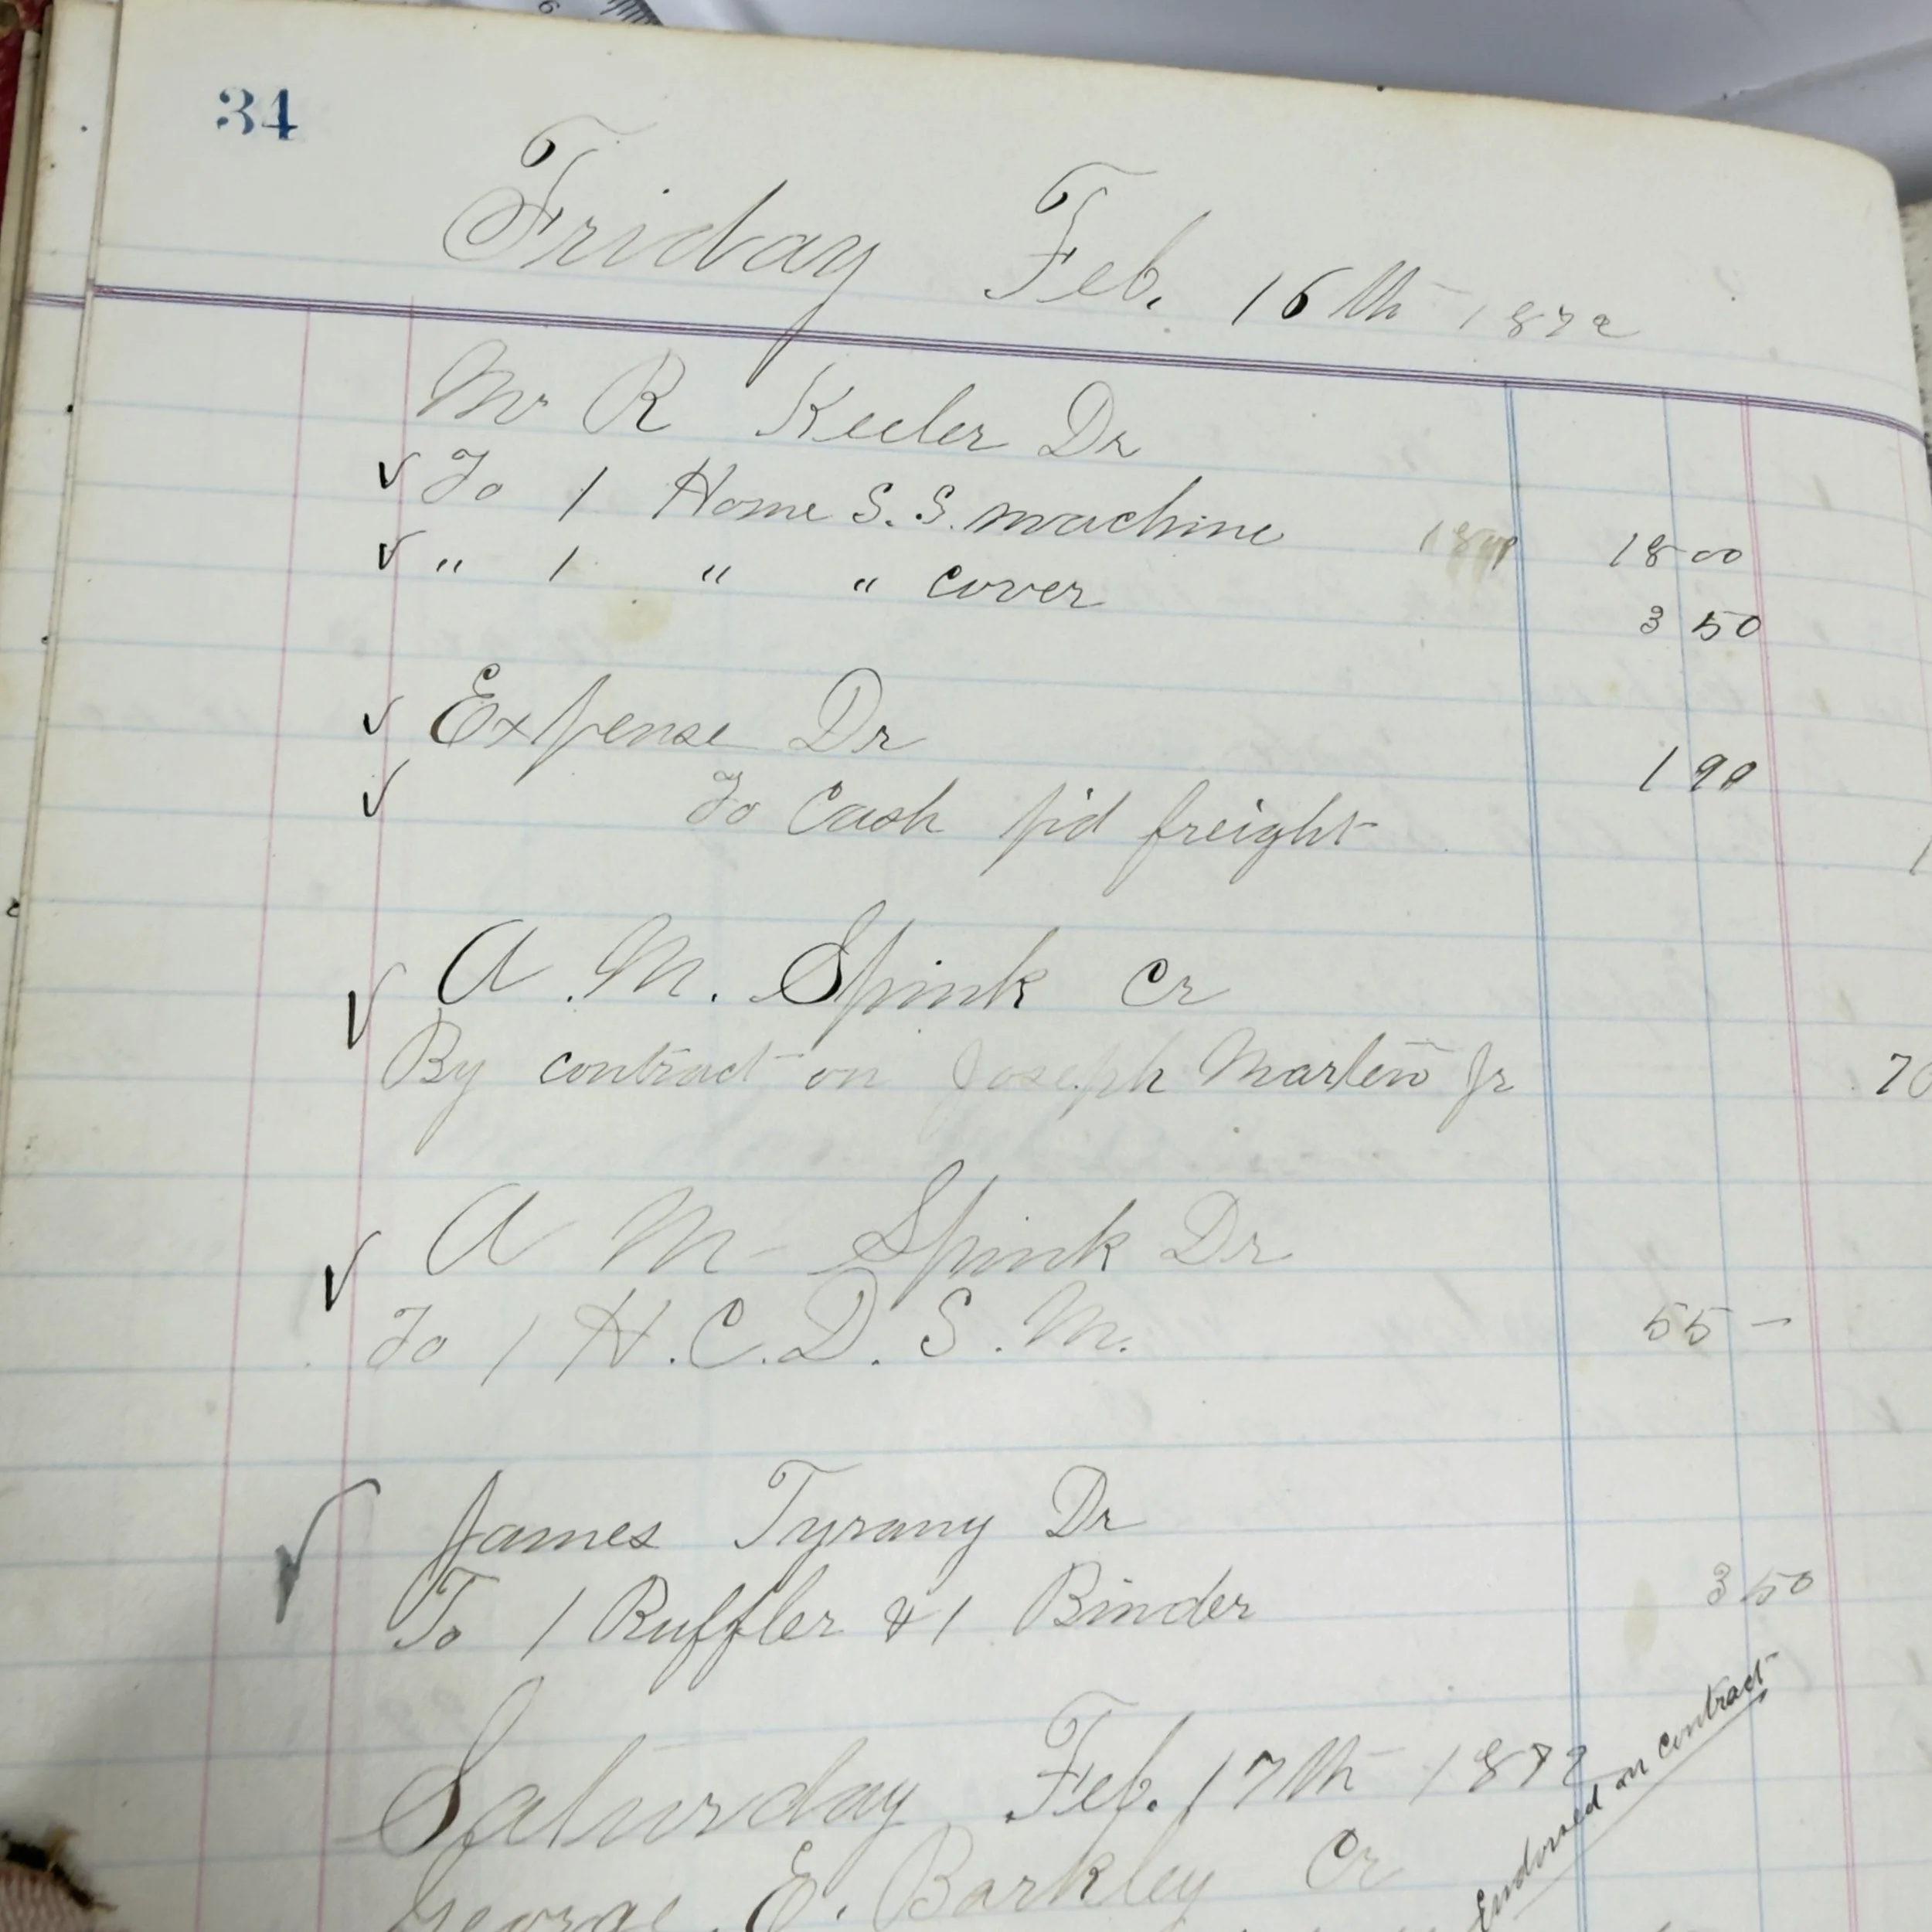 34
Friday Feb. 16th 1872
Mr R Keeler Dr
To 1 Home S.S. machine 18 00
" 1 " " cover 3 50
Expense Dr 1 90
To Cash p'd freight
A. M. Spink Cr
By contract on Joseph Martin Jr 70
A M Spink Dr
To 1 H.C.D.S.M. 55 –
James Tyrany Dr
To 1 Ruffler & 1 Binder 3 50
Saturday Feb. 17th 1872
George E. Barkley Cr
Endorsed on contract